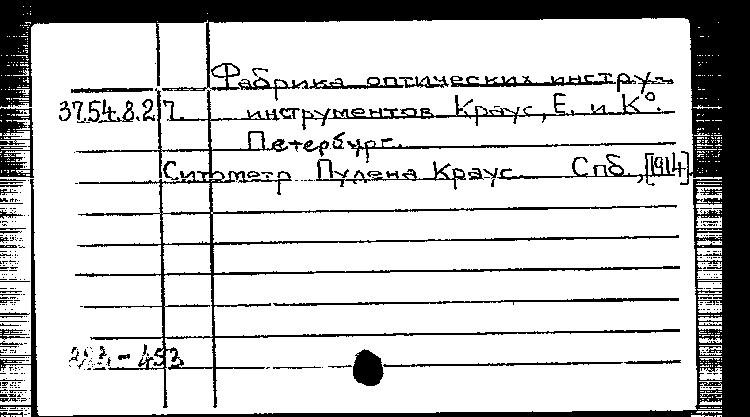 Фабрика оптических инстру-
37.54.8.27. инструментов Краус, Е. и К°.
Петербург.
Ситометр Пулена Краус. Спб., [1914].